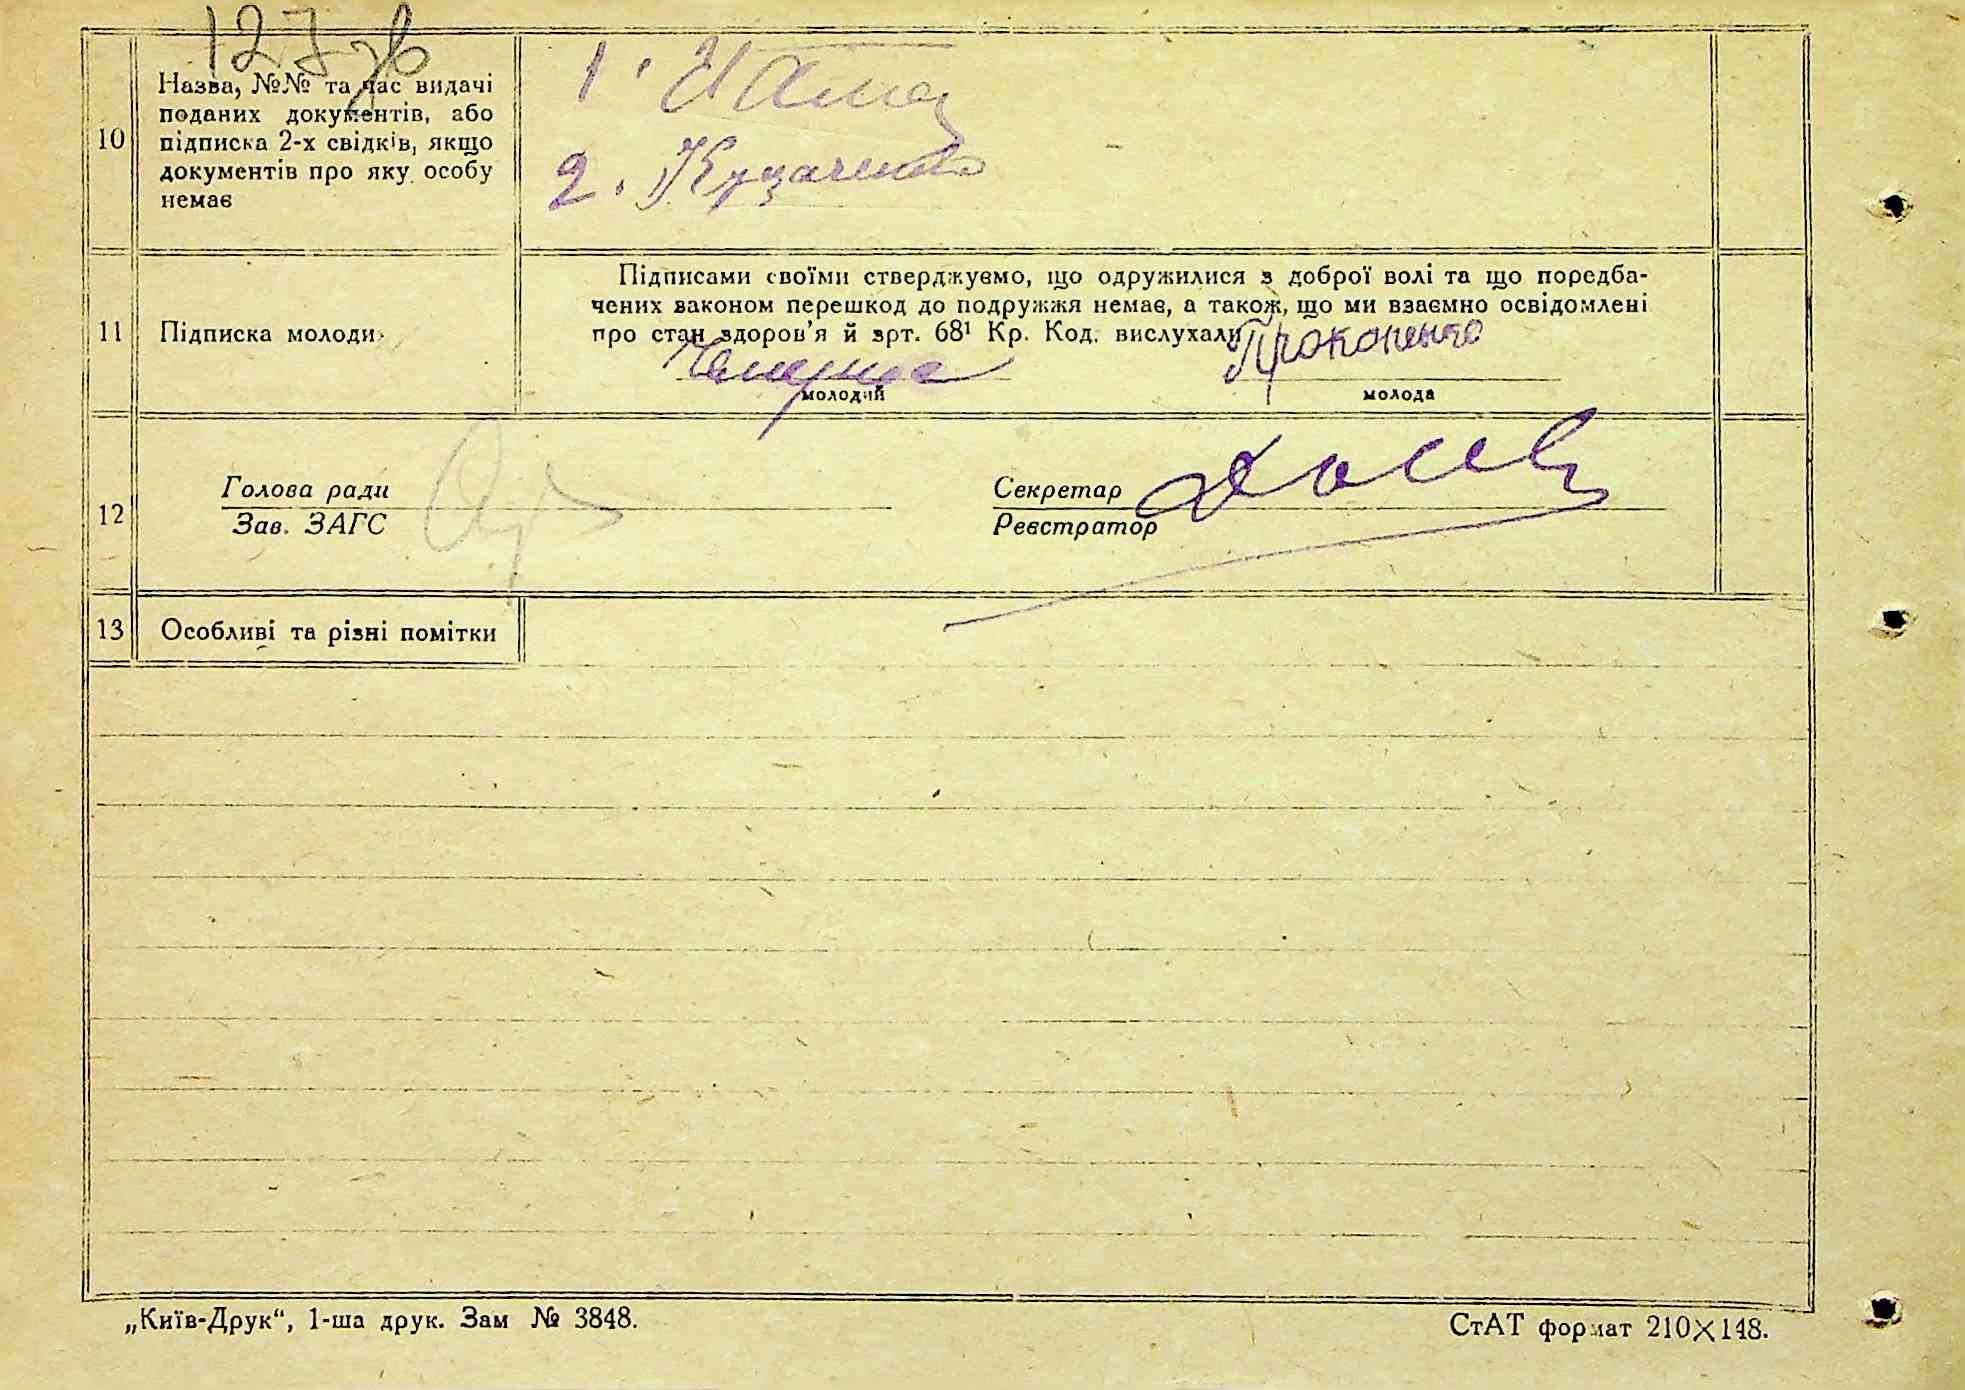 127 зв
10
Назва, №№ та час видачі
поданих документів, або
підписка 2-х свідків, якщо
документів про яку особу
немає
1.
2.
11
Підписка молоди
Підписами своїми стверджуємо, що одружилися з доброї волі та що поредба-
чених законом перешкод до подружжя немає, а також, що ми взаємно освідомлені
про стан здоров'я й арт. 68¹ Кр. Код. вислухали
Прокопенко
молодий
молода
12
Голова ради
Зав. ЗАГС
Секретар
Реєстратор
13
Особливі та різні помітки
„Київ-Друк“, 1-ша друк. Зам № 3848.
СтАТ формат 210×148.